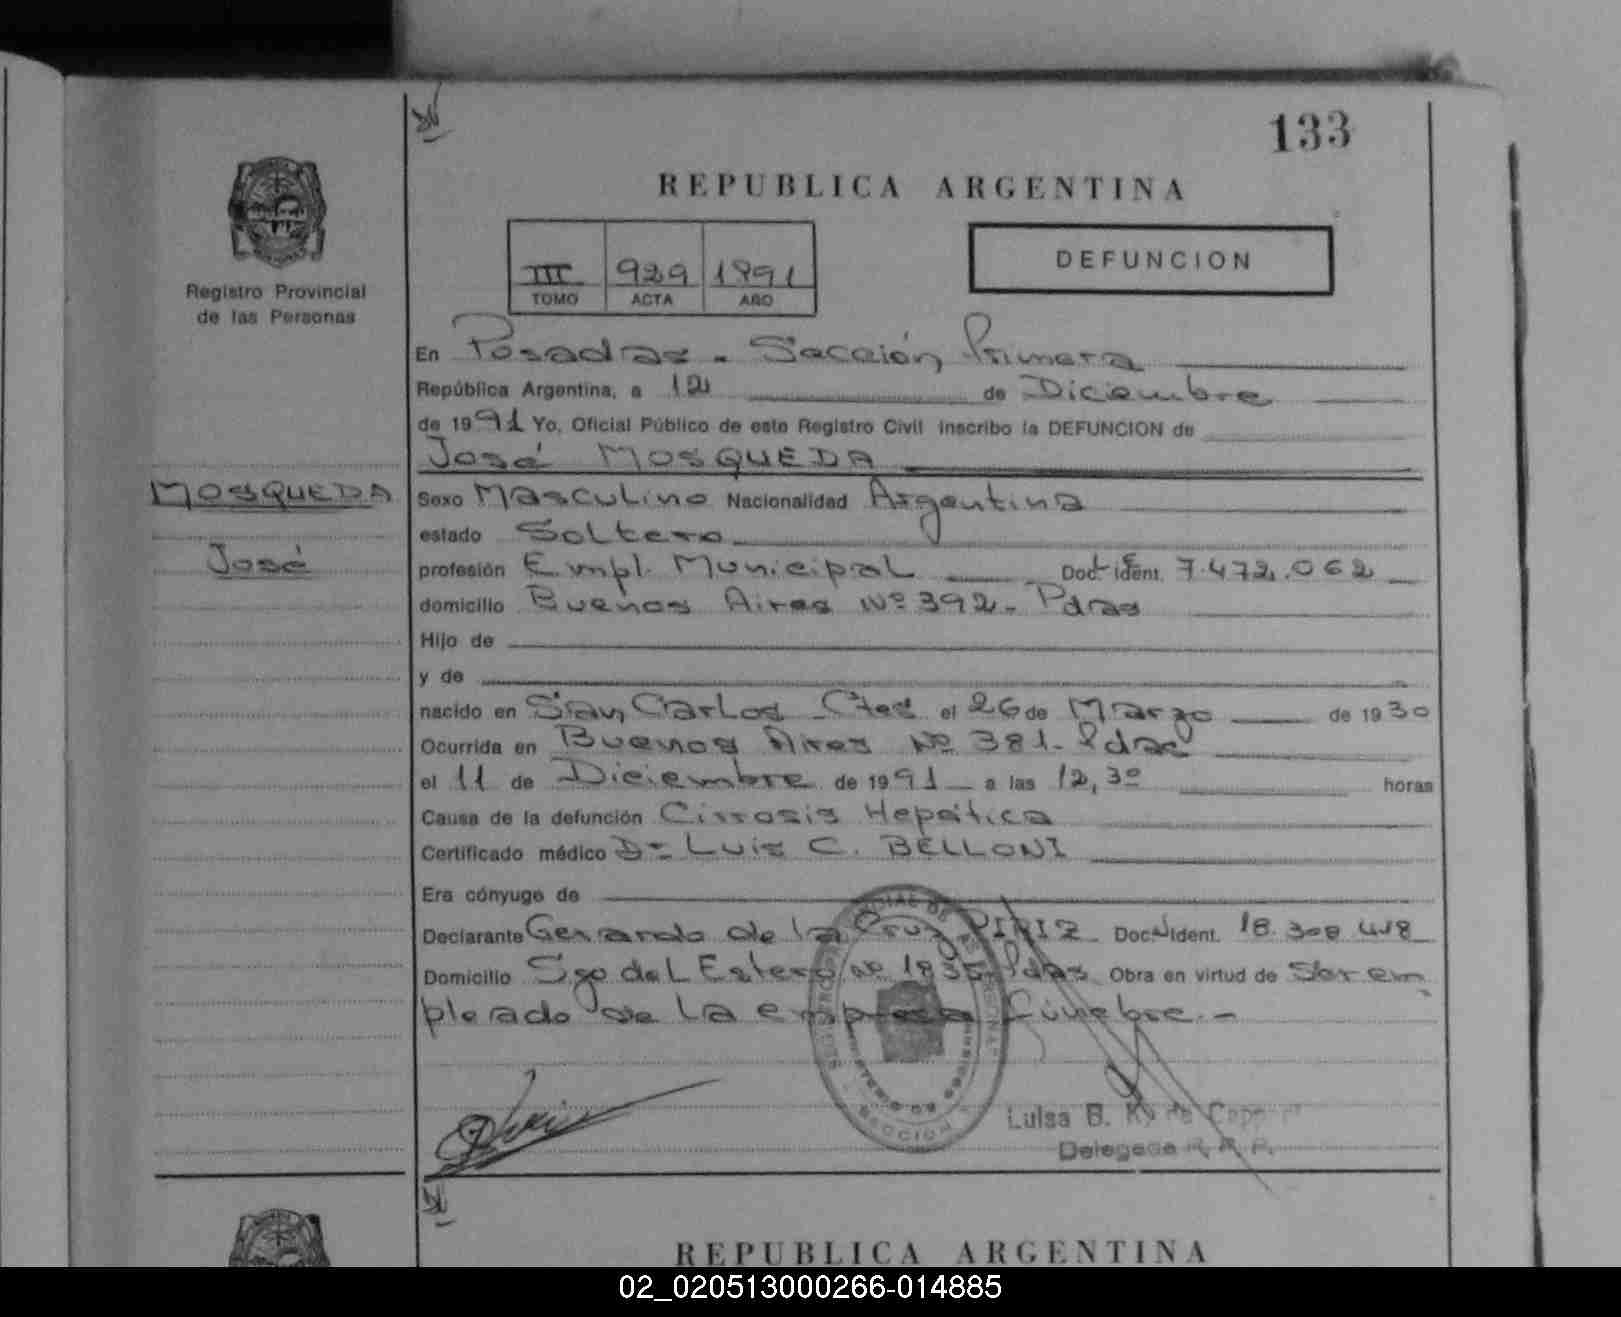 133
REPUBLICA ARGENTINA
III 929 1991
TOMO ACTA AÑO
DEFUNCION
Registro Provincial
de las Personas
En Posadas - Sección Primera
República Argentina, a 12 de Diciembre
de 1991 Yo, Oficial Público de este Registro Civil inscribo la DEFUNCION de
José MOSQUEDA
MOSQUEDA
José
Sexo Masculino Nacionalidad Argentina
estado Soltero
profesión Empl. Municipal Doc. Ident. 7.472.062
domicilio Buenos Aires Nº 392 - Pdas
Hijo de
y de
nacido en San Carlos - Ctes el 26 de Marzo de 1930
Ocurrida en Buenos Aires Nº 381 - Pdas
el 11 de Diciembre de 1991 a las 12,30 horas
Causa de la defunción Cirrosis Hepática
Certificado médico Dr Luis C. BELLONI
Era cónyuge de
Declarante Gerardo de la Cruz Doc. Ident. 18.308.418
Domicilio Sgo del Estero Nº Pdas Obra en virtud de Ser em
pleado de la empresa fúnebre.-
SECCION
Luisa B. de
Delegada R. P.
REPUBLICA ARGENTINA
02_020513000266-014885